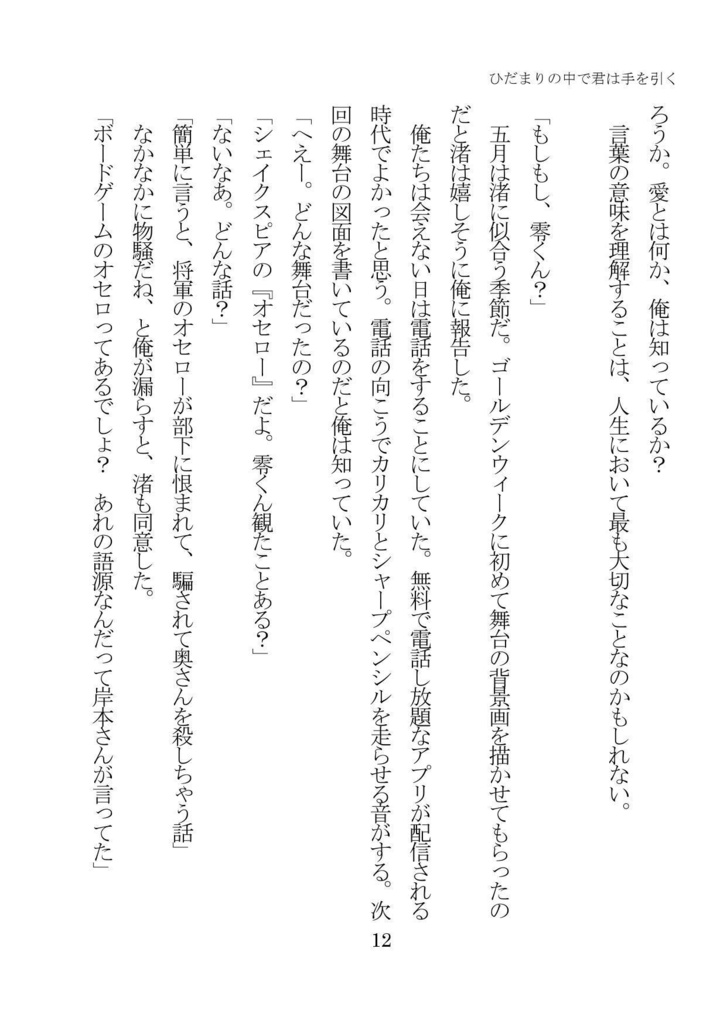 ひだまりの中で君は手を引く
ろうか。愛とは何か、俺は知っているか？
　言葉の意味を理解することは、人生において最も大切なことなのかもしれない。
「もしもし、零くん？」
　五月は渚に似合う季節だ。ゴールデンウィークに初めて舞台の背景画を描かせてもらったの
だと渚は嬉しそうに俺に報告した。
　俺たちは会えない日は電話をすることにしていた。無料で電話し放題なアプリが配信される
時代でよかったと思う。電話の向こうでカリカリとシャープペンシルを走らせる音がする。次
回の舞台の図面を書いているのだと俺は知っていた。
「へえー。どんな舞台だったの？」
「シェイクスピアの『オセロー』だよ。零くん観たことある？」
「ないなあ。どんな話？」
「簡単に言うと、将軍のオセローが部下に恨まれて、騙されて奥さんを殺しちゃう話」
　なかなかに物騒だね、と俺が漏らすと、渚も同意した。
「ボードゲームのオセロってあるでしょ？　あれの語源なんだって岸本さんが言ってた」
12